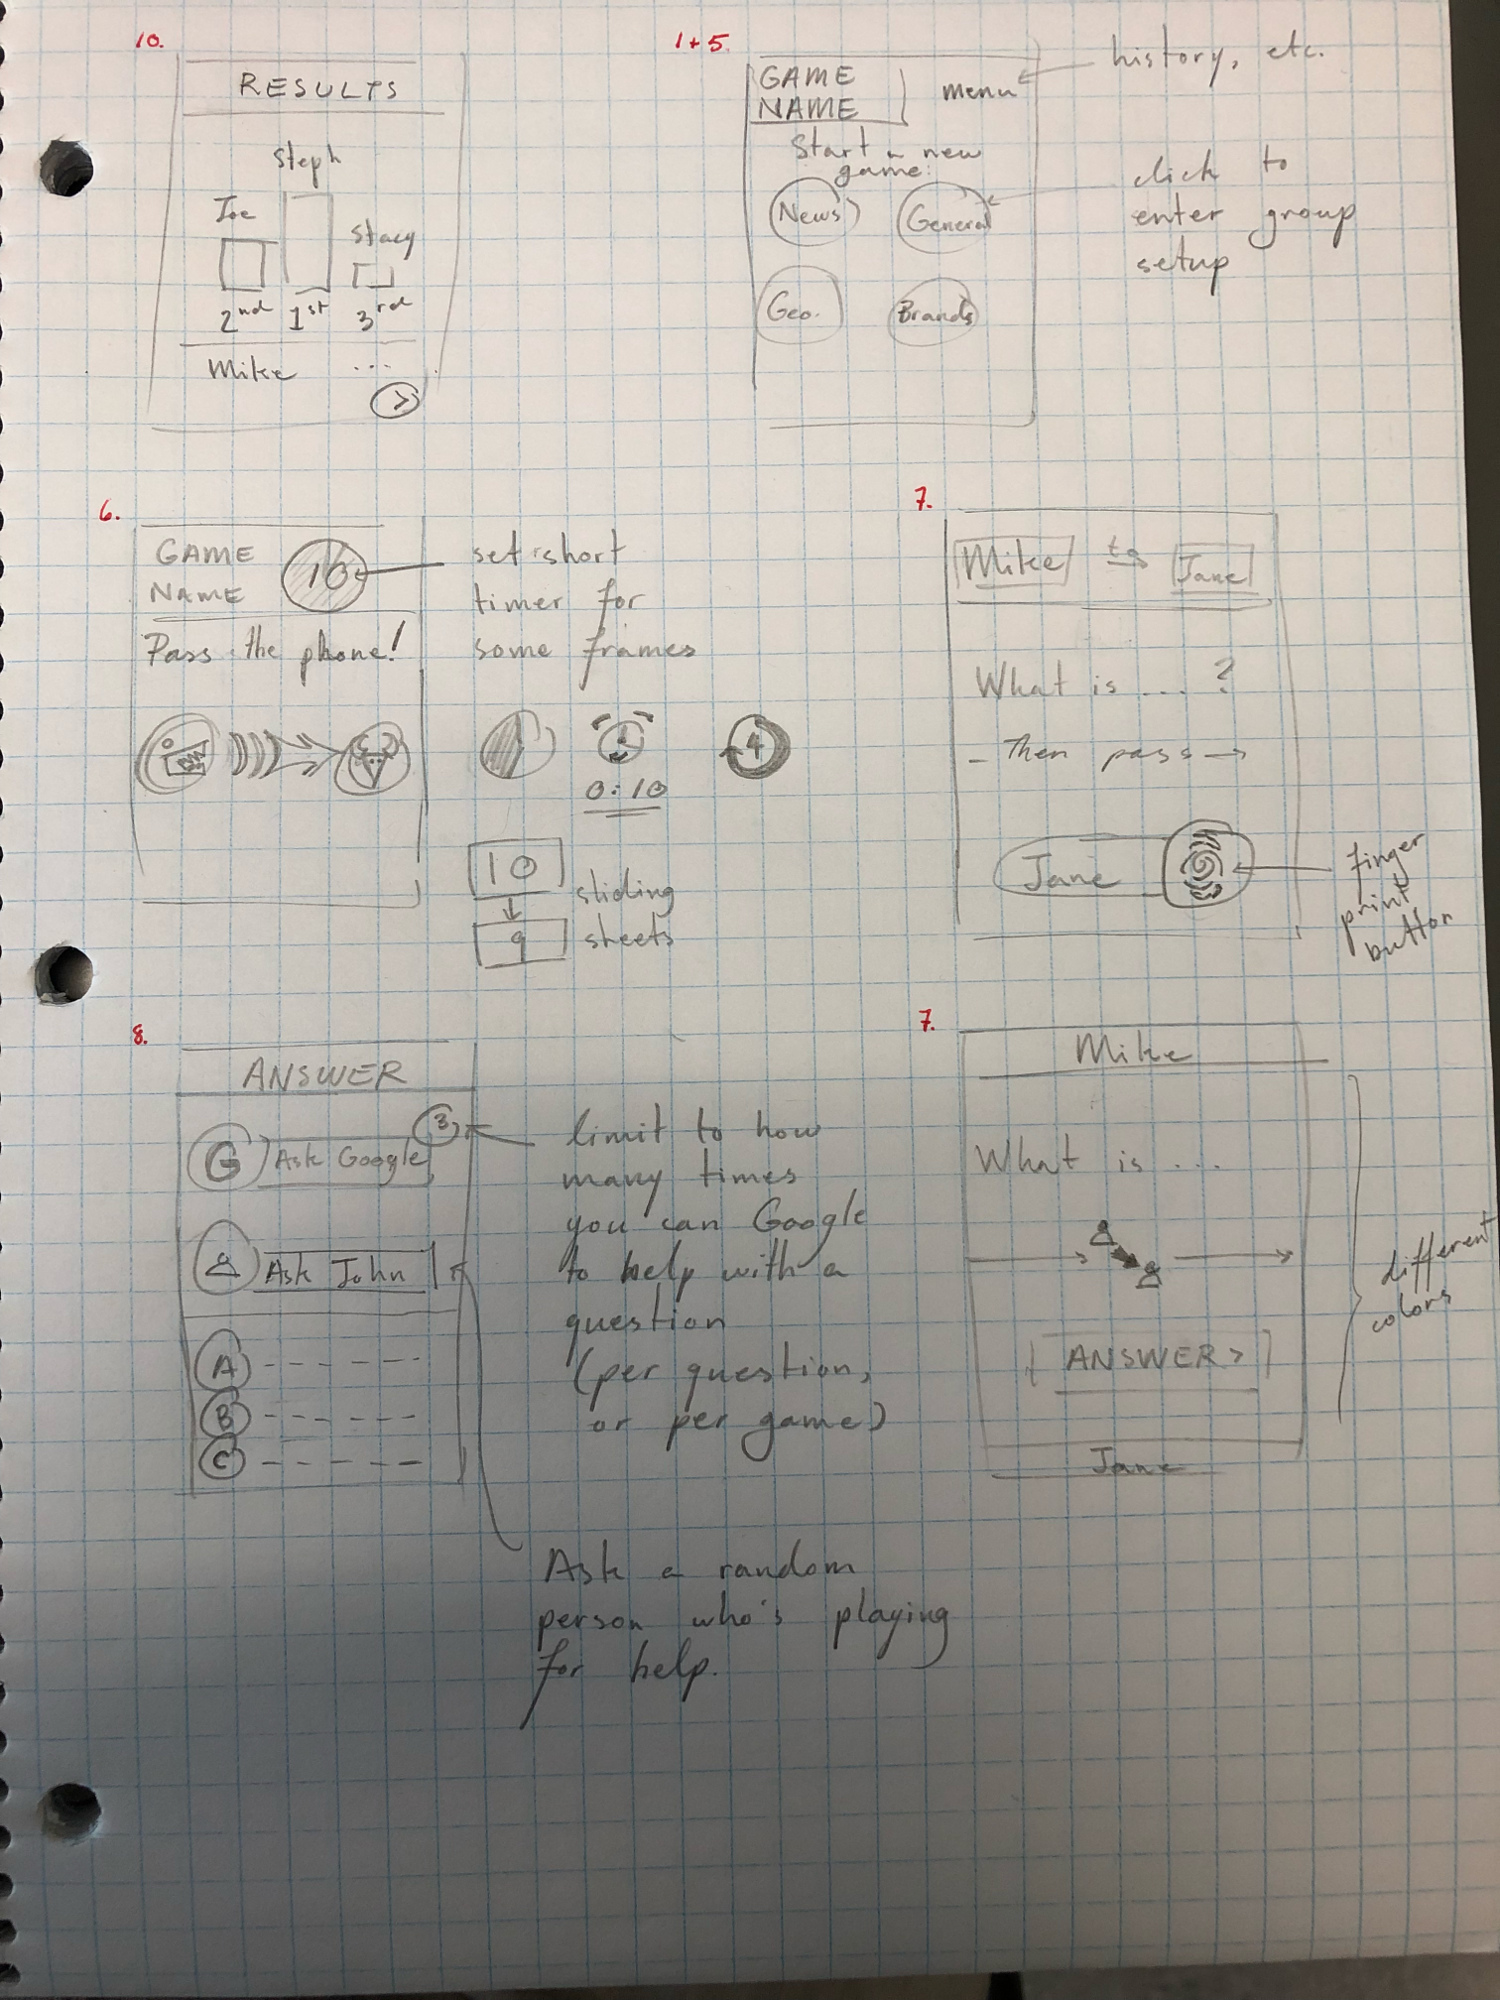 10.
RESULTS
Steph
Joe
Stacy
2nd 1st 3rd
Mike ...
>
1+5.
GAME
NAME
menu
history, etc.
Start a new
game:
News General
Geo. Brands
click to
enter group
setup
6.
GAME
NAME
10
Pass the phone!
set short
timer for
some frames
4
0:10
10
9
sliding
sheets
7.
Mike to Jane
What is ... ?
- Then pass →
Jane
finger
print
button
8.
ANSWER
3
G Ask Google
Ask John
A
B
C
limit to how
many times
you can Google
to help with a
question
(per question,
or per game)
Ask a random
person who's playing
for help.
7.
Mike
What is ...
ANSWER >
Jane
different
colors